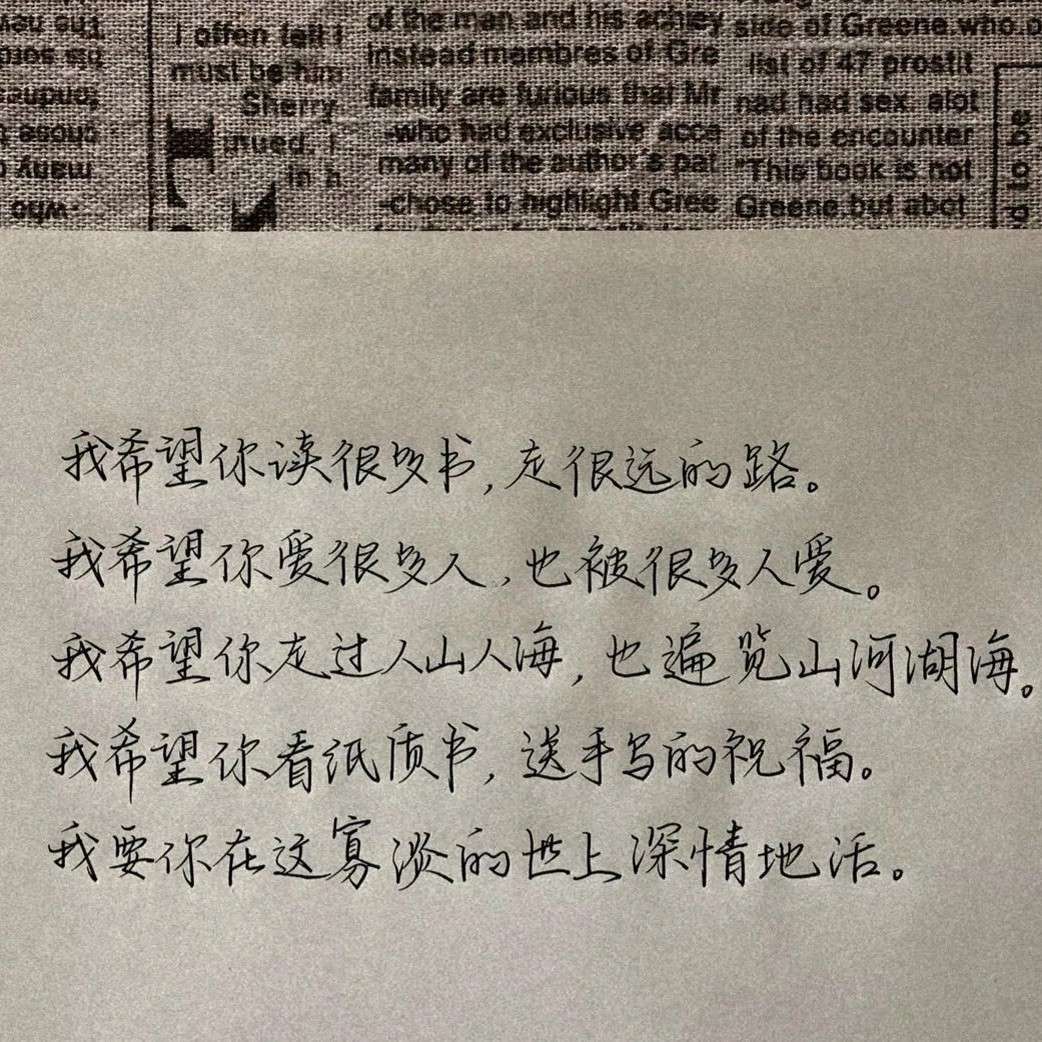 The new
his sord
many
who
I offen felt I
must be him
Sherry
inued. I
in h
of the man and his achiev
Instead membres of Gre
family are furious that Mr
-who had exclusive acce
many of the author's pat
-chose to highlight Gree
side of Greene.who.o
list of 47 prostit
nad had sex. alot
of the encounter
"This book is not
Greene.but abot
d to be
我希望你读很多书,走很远的路。
我希望你爱很多人,也被很多人爱。
我希望你走过人山人海,也遍览山河湖海。
我希望你看纸质书,送手写的祝福。
我要你在这寡淡的世上深情地活。